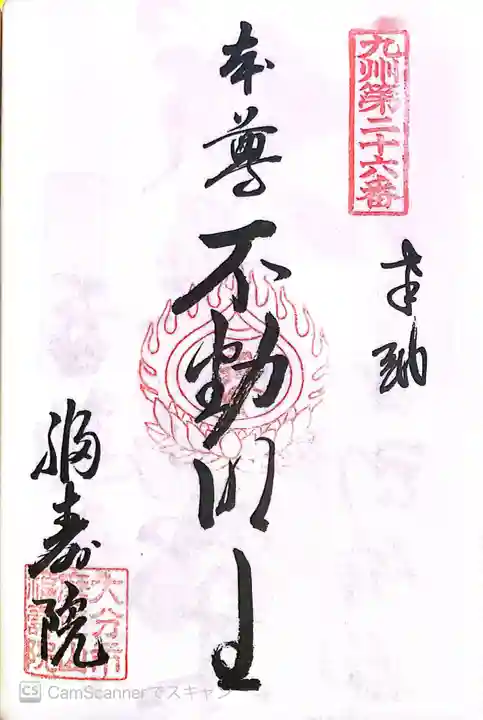 九州第二十六番
奉納
本尊
不動明王
福寿院
CS CamScannerでスキャン